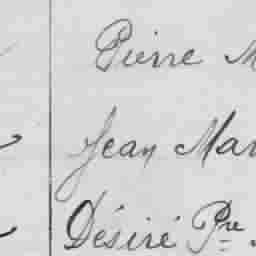 Pierre M
Jean Mar
Désiré Pre